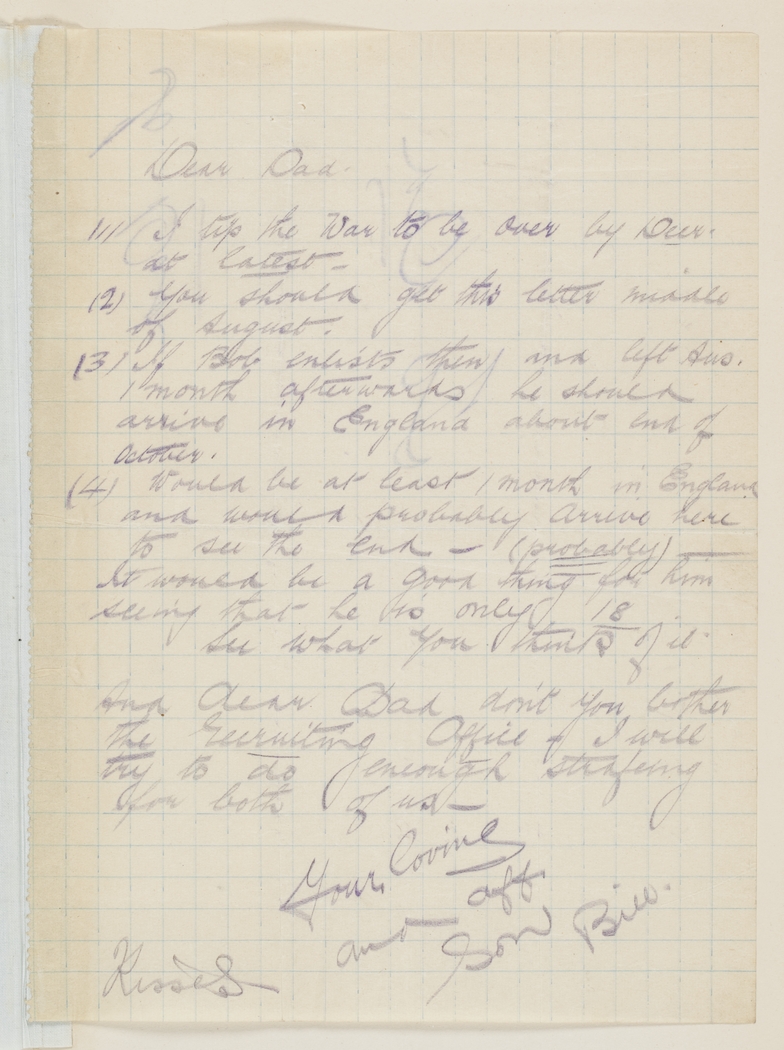 Dear Dad.
(1) I tip the War to be over by Decr.
at latest –
(2) You should get this letter middle
of August.
(3) If Bob enlists then, and left Aus.
1 month afterwards he should
arrive in England about end of
October.
(4) Would be at least 1 month in England
and would probably arrive here
to see the end – (probably) –
It would be a good thing for him
seeing that he is only 18
See what you think of it.
And dear Dad don't you bother
the Recruiting Office – I will
try to do enough strafeing
for both of us –
Your loving
and aff.
Son Bill.
Kisses